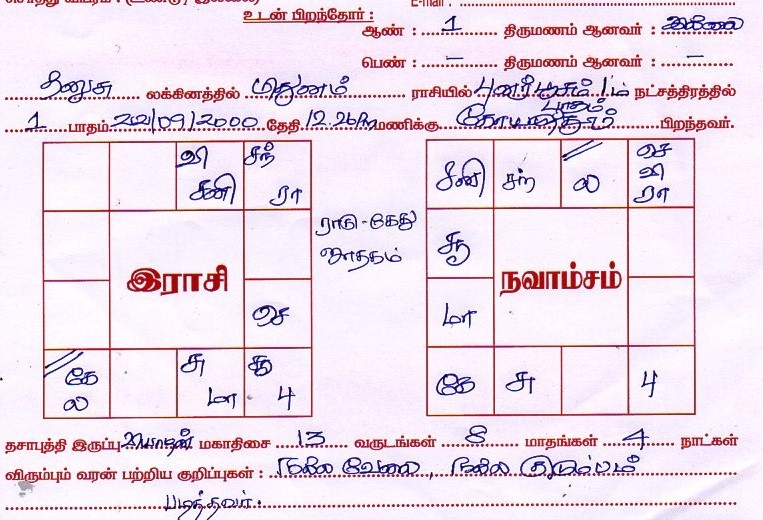 உடன் பிறந்தோர் :
ஆண் : 1 திருமணம் ஆனவர் : இல்லை
பெண் : – திருமணம் ஆனவர் : –
தனுசு லக்கினத்தில் மிதுனம் ராசியில் புனர்பூசம் 1ம் பாதம் நட்சத்திரத்தில்
1 பாதம் 22/09/2000 தேதி 12.26 மணிக்கு பிறந்தவர்.
வி சந் செ
சனி ரா சனி சந் ல வி
ரா
ராகு - கேது சூ
ஜாதகம்
இராசி நவாம்சம்
செ மா
கே சு சூ கே சு பு
ல மா பு
தசாபுத்தி இருப்பு வியாழன் மகாதிசை 13 வருடங்கள் 8 மாதங்கள் 4 நாட்கள்
விரும்பும் வரன் பற்றிய குறிப்புகள் : நல்ல வேலை, நல்ல குடும்பம்
படித்தவர்.